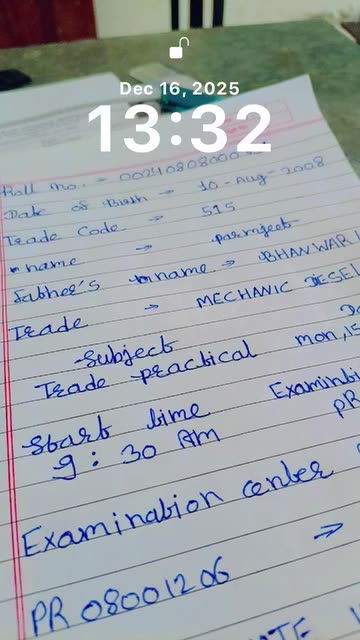 Dec 16, 2025
13:32
Roll no. - 00240808000
Date of Birth → 10-Aug-2008
Trade Code → 515
name → parmjeet
Father's name → BHANWAR
Trade → MECHANIC DIESEL
Subject
Trade practical mon, 15
Start time
9:30 AM
Examination center
PR08001206 →